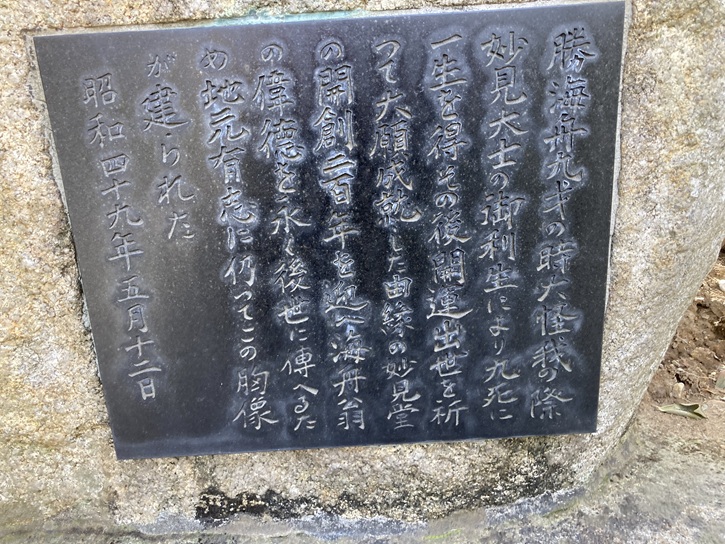 勝海舟九才の時大怪我の際
妙見大士の御利生により九死に
一生を得その後開運出世を祈
つて大願成就した由縁の妙見堂
の開創二百年を迎へ海舟翁
の偉徳を永く後世に傳へるた
め地元有志に仍つてこの胸像
が建られた
昭和四十九年五月十二日